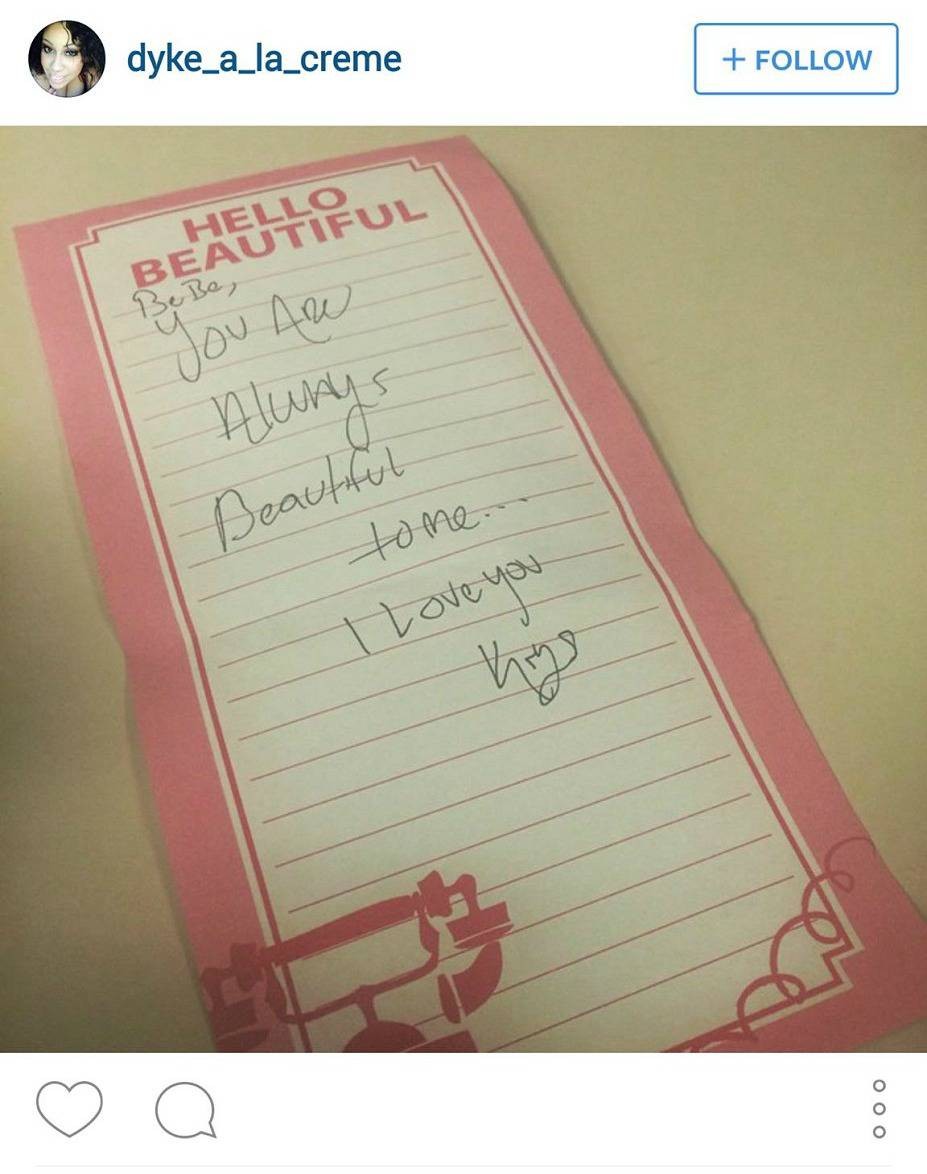 dyke_a_la_creme
+ FOLLOW
HELLO
BEAUTIFUL
BeBe,
You Are
Always
Beautiful
to me...
I Love you